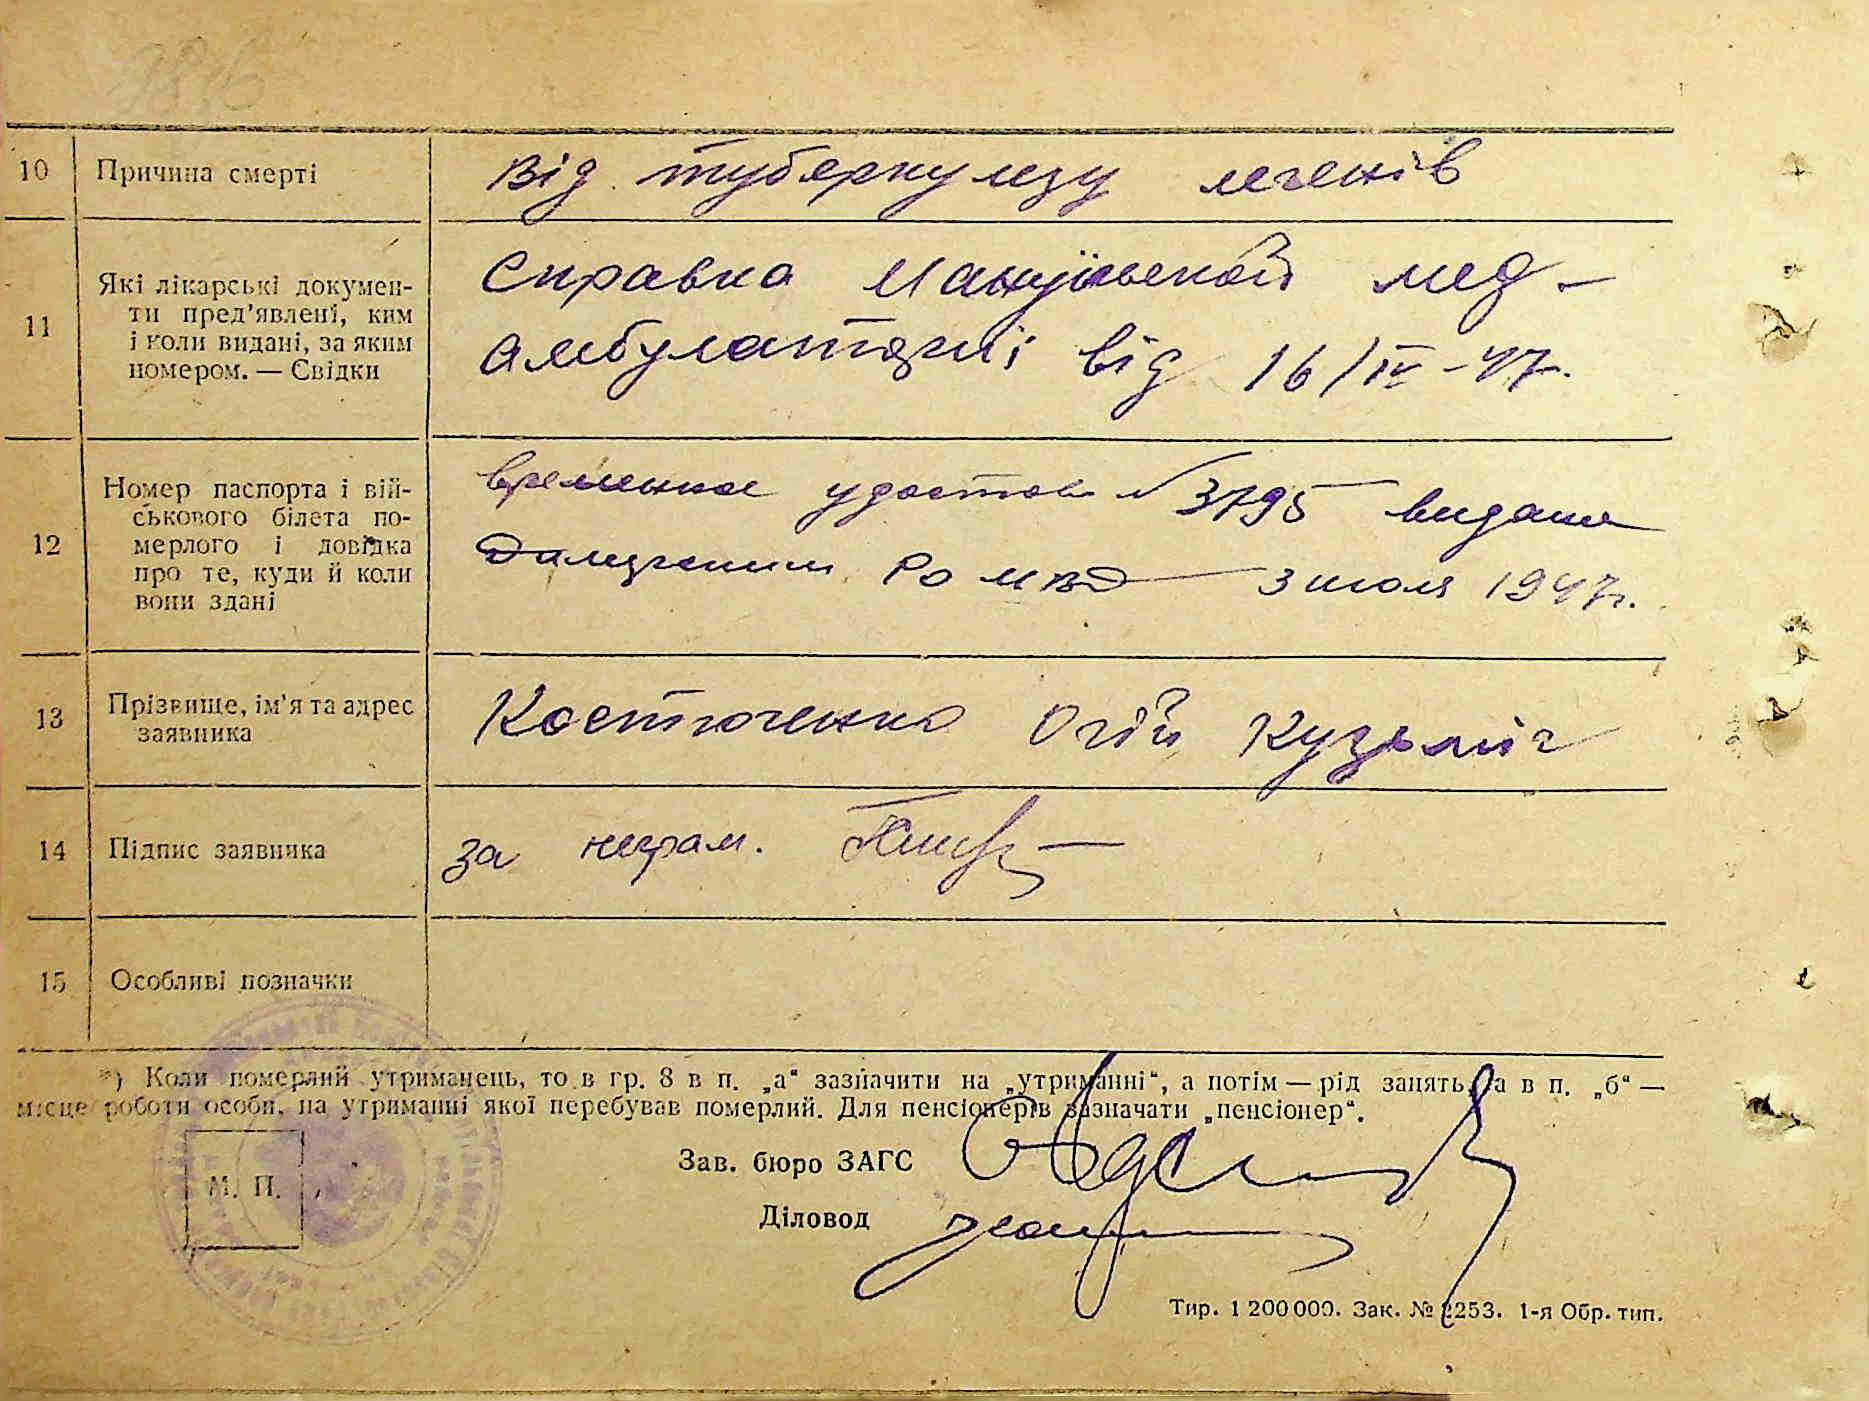 10 Причина смерті Від туберкулезу легенів
11 Які лікарські докумен-
ти пред'явлені, ким
і коли видані, за яким
номером. — Свідки
Справка мед-
амбулаторії від 16/IV-47.
12 Номер паспорта і вій-
ськового білета по-
мерлого і довідка
про те, куди й коли
вони здані
временное удостов № 3795 видано
РО МВД 3 июля 1947г.
13 Прізвище, ім'я та адрес
заявника
Костюченко Огій Кузьміч
14 Підпис заявника за неграм.
15 Особливі позначки
*) Коли померлий утриманець, то в гр. 8 в п. „а“ зазначити на „утриманні“, а потім — рід занять, а в п. „б“ —
місце роботи особи, на утриманні якої перебував померлий. Для пенсіонерів зазначати „пенсіонер“.
М. П.
Зав. бюро ЗАГС
Діловод
Тир. 1 200 000. Зак. № 2253. 1-я Обр. тип.